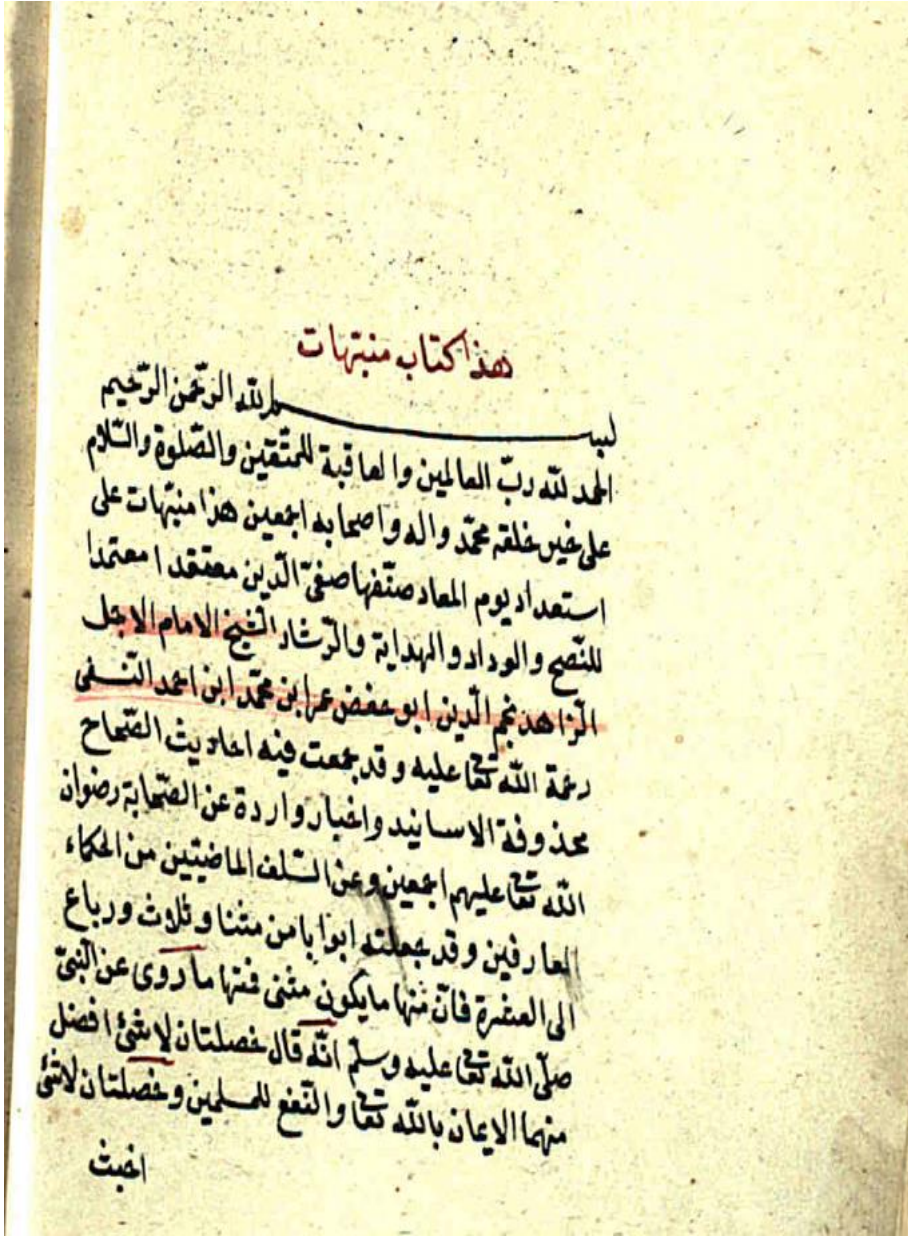 هذا كتاب منبّهات
بسم الله الرّحمن الرّحيم
الحمد لله ربّ العالمين والعاقبة للمتّقين والصّلوة والسّلام
على خير خلقه محمّد واله واصحابه اجمعين هذا منبّهات على
استعداد يوم المعاد صنّفها صفىّ الدّين معتقدا معتمدا
للنّصح والوداد والهداية والرّشاد الشّيخ الامام الاجل
الزّاهد نجم الدّين ابو حفض عمر ابن محمّد ابن احمد النّسفى
رحمة الله تعا عليه وقد جمعت فيه احاديث الصّحاح
محذوفة الاسانيد واخبار واردة عن الصّحابة رضوان
الله تعا عليهم اجمعين وعن السّلف الماضيّين من الحكماء
العارفين وقد جعلته ابوابا من مثنا وثلاث ورباع
الى العشرة فانّ منها مايكون مثنى فمنها ما روى عن النّبىّ
صلّى الله تعا عليه وسلّم انّه قال خصلتان لا شئ افضل
منهما الايمان بالله تعا والنّفع للمسلمين وخصلتان لا شئ
اخبث